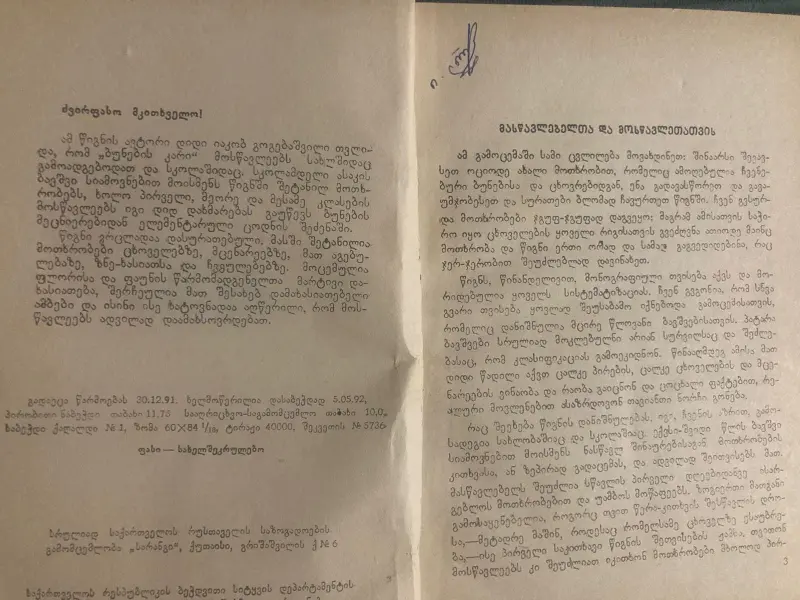 ძვირფასო მკითხველო!
ამ წიგნის ავტორი დიდი იაკობ გოგებაშვილი თვლი-
და, რომ „ბუნების კარი“ მოსწავლეებს სახლშიდაც
გამოადგებოდათ და სკოლაშიდაც. სკოლამდელი ასაკის
ბავშვი სიამოვნებით მოისმენს წიგნში შეტანილ მოთხ-
რობებს, ხოლო პირველი, მეორე და მესამე კლასების
მოსწავლეებს იგი დიდ დახმარებას გაუწევს ბუნების
მეცნიერებიდან ელემენტარული ცოდნის შეძენაში.
წიგნი გრცლადაა დასურათებული, მასში შეტანილია
მოთხრობები ცხოველებზე, მცენარეებზე, მათ აგებუ-
ლებაზე, ზნე-ხასიათსა და ჩვეულებებზე. მოცემულია
ფლორისა და ფაუნის წარმომადგენელთა მარტივი და-
ხასიათება, შერჩეულია მათ შესახებ დამახასიათებელი
ამბები და ისინი ისე ხატოვნადაა აღწერილი, რომ მოს-
წავლეებს ადვილად დაამახსოვრდებათ.
გადაეცა წარმოებას 30.12.91. ხელმოწერილია დასაბეჭდად 5.05.92,
პირობითი ნაბეჭდი თაბახი 11,75 სააღრიცხვო-საგამომცემლო თაბახი 10,0,
საბეჭდი ქაღალდი № 1, ზომა 60X84 1/16, ტირაჟი 40000, შეკვეთის № 5736
ფასი — სახელშეკრულებო
სრულიად საქართველოს რუსთაველის საზოგადოების
გამომცემლობა „სარანგი“, ქუთაისი, გრიშაშვილის ქ № 6
საქართველოს რესპუბლიკის ბეჭდვითი სიტყვის დეპარტამენტის
მასწავლებელთა და მოსწავლეთათვის
ამ გამოცემაში სამი ცვლილება მოვახდინეთ: შინაარსი შევავ-
სეთ ოციოდე ახალი მოთხრობით, რომელიც ამოღებულია ჩვენე-
ბური ბუნებისა და ცხოვრებიდგან, ენა გადავასწორეთ და გავა-
უმჯობესეთ და სურათები ბლომად ჩავურთეთ წიგნში. ჩვენ გვსურ-
და მოთხრობები ჯგუფ-ჯგუფად დაგვეყო; მაგრამ ამისათვის საჭი-
რო იყო ცხოველების ყოველი რიგისათვის გვეძღვნა ათიოდე მაინც
მოთხრობა და წიგნი ერთი ორად და სამად გაგვედიდებინა, რაც
ჯერ-ჯერობით შეუძლებლად დავინახეთ.
წიგნს, წინანდელივით, მონოგრაფიული თვისება აქვს და მო-
რიდებულია ყოველს სისტემატიზაციას. ჩვენ გვგონია, რომ სხვა
გვარი თვისება ყოვლად შეუსაბამო იქნებოდა გამოცემისათვის,
რომელიც დანიშნულია მცირე წლოვანი ბავშვებისათვის. პატარა
ბავშვები სრულიად მოკლებულნი არიან სურვილსაც და შეძლე-
ბასაც, რომ კლასიფიკაციას გამოეკიდნონ. წინააღმდეგ ამისა მათ
დიდი წადილი აქვთ ცალკე პირების, ცალკე ცხოველების და მცე-
ნარეების ვინაობა და რაობა გაიცნონ და ცოცხალი ფაქტებით, რე-
ალური მოვლენებით ასაზრდოვონ თავიანთი ნორჩი გონება.
რაც შეეხება წიგნის დანიშნულებას, იგი, ჩვენის აზრით, გამო-
სადეგია სახლობაშიაც და სკოლაშიაც. ექვსი-შვიდი წლის ბავშვი
სიამოვნებით მოისმენს ნასწავლ შინაურებისაგან მოთხრობების
კითხვასა, ან ზეპირად გადაცემას, და ადვილად შეითვისებს მათ.
მასწავლებელს შეუძლია სწავლის პირველი დღეებიდანვე ისარ-
გებლოს მოთხრობებით და უამბოს მოწაფეებს. ზოგიერთი მათგანი
გამოსაყენებელია, როგორც თვით წერა-კითხვის შესწავლის დრო-
სა,—მეტადრე მაშინ, როდესაც რომელსამე ცხოველზე ესაუბრე-
ბა,—ისე პირველი საკითხავი წიგნის შეთვისების ჟამსა, თვითონ
მოსწავლეებს კი შეუძლიათ იკითხონ მოთხრობები მხოლოდ პირ-
3